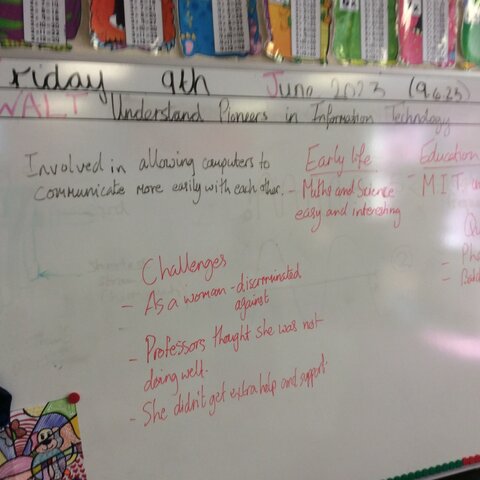 Friday 9th June 2023 (9.6.23)
WALT Understand Pioneers in Information Technology
Involved in allowing computers to
communicate more easily with each other.
Early life
- Maths and Science
easy and interesting
Education
- M.I.T.
Challenges
- As a woman - discriminated
against
- Professors thought she was not
doing well.
- She didn't get extra help and support.